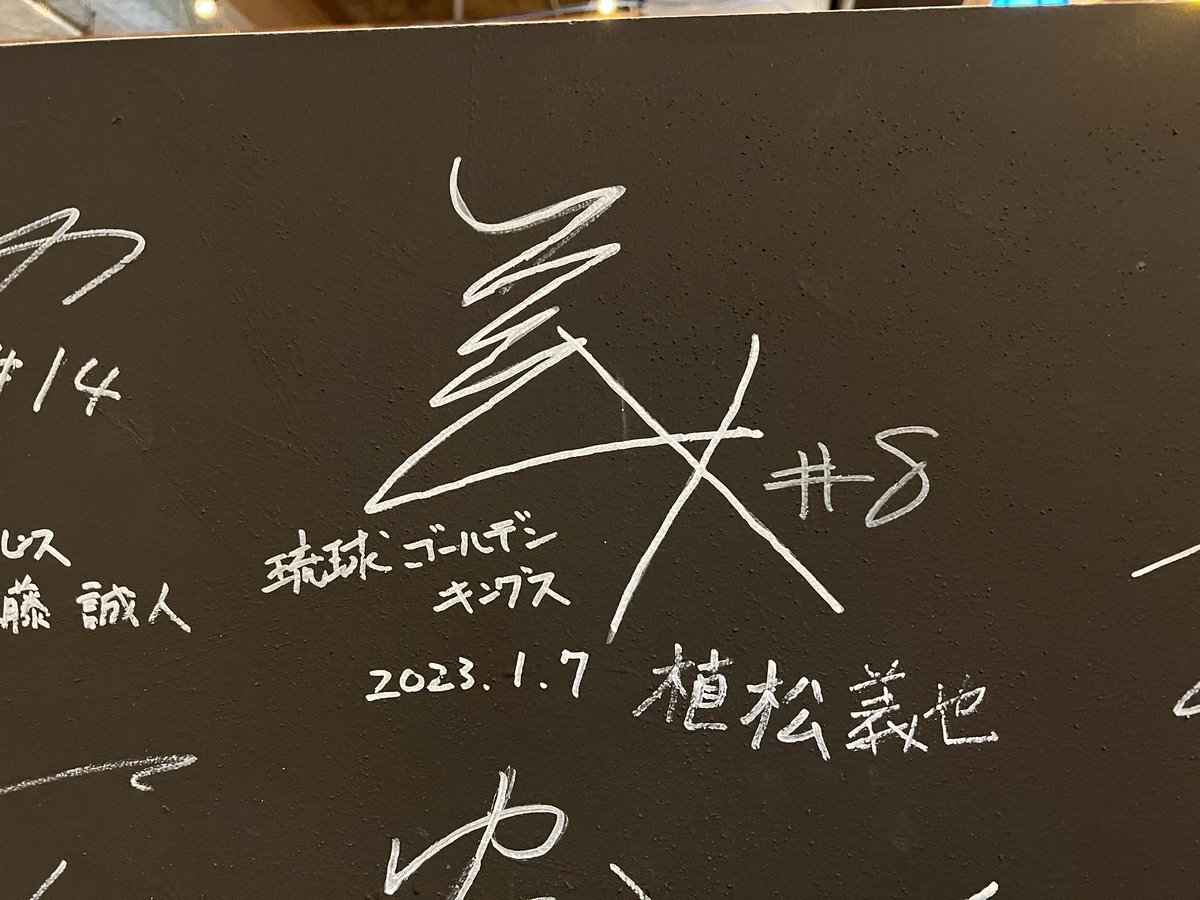 #14
藤 誠人
#8
琉球 ゴールデン
キングス
2023.1.7
植松義也